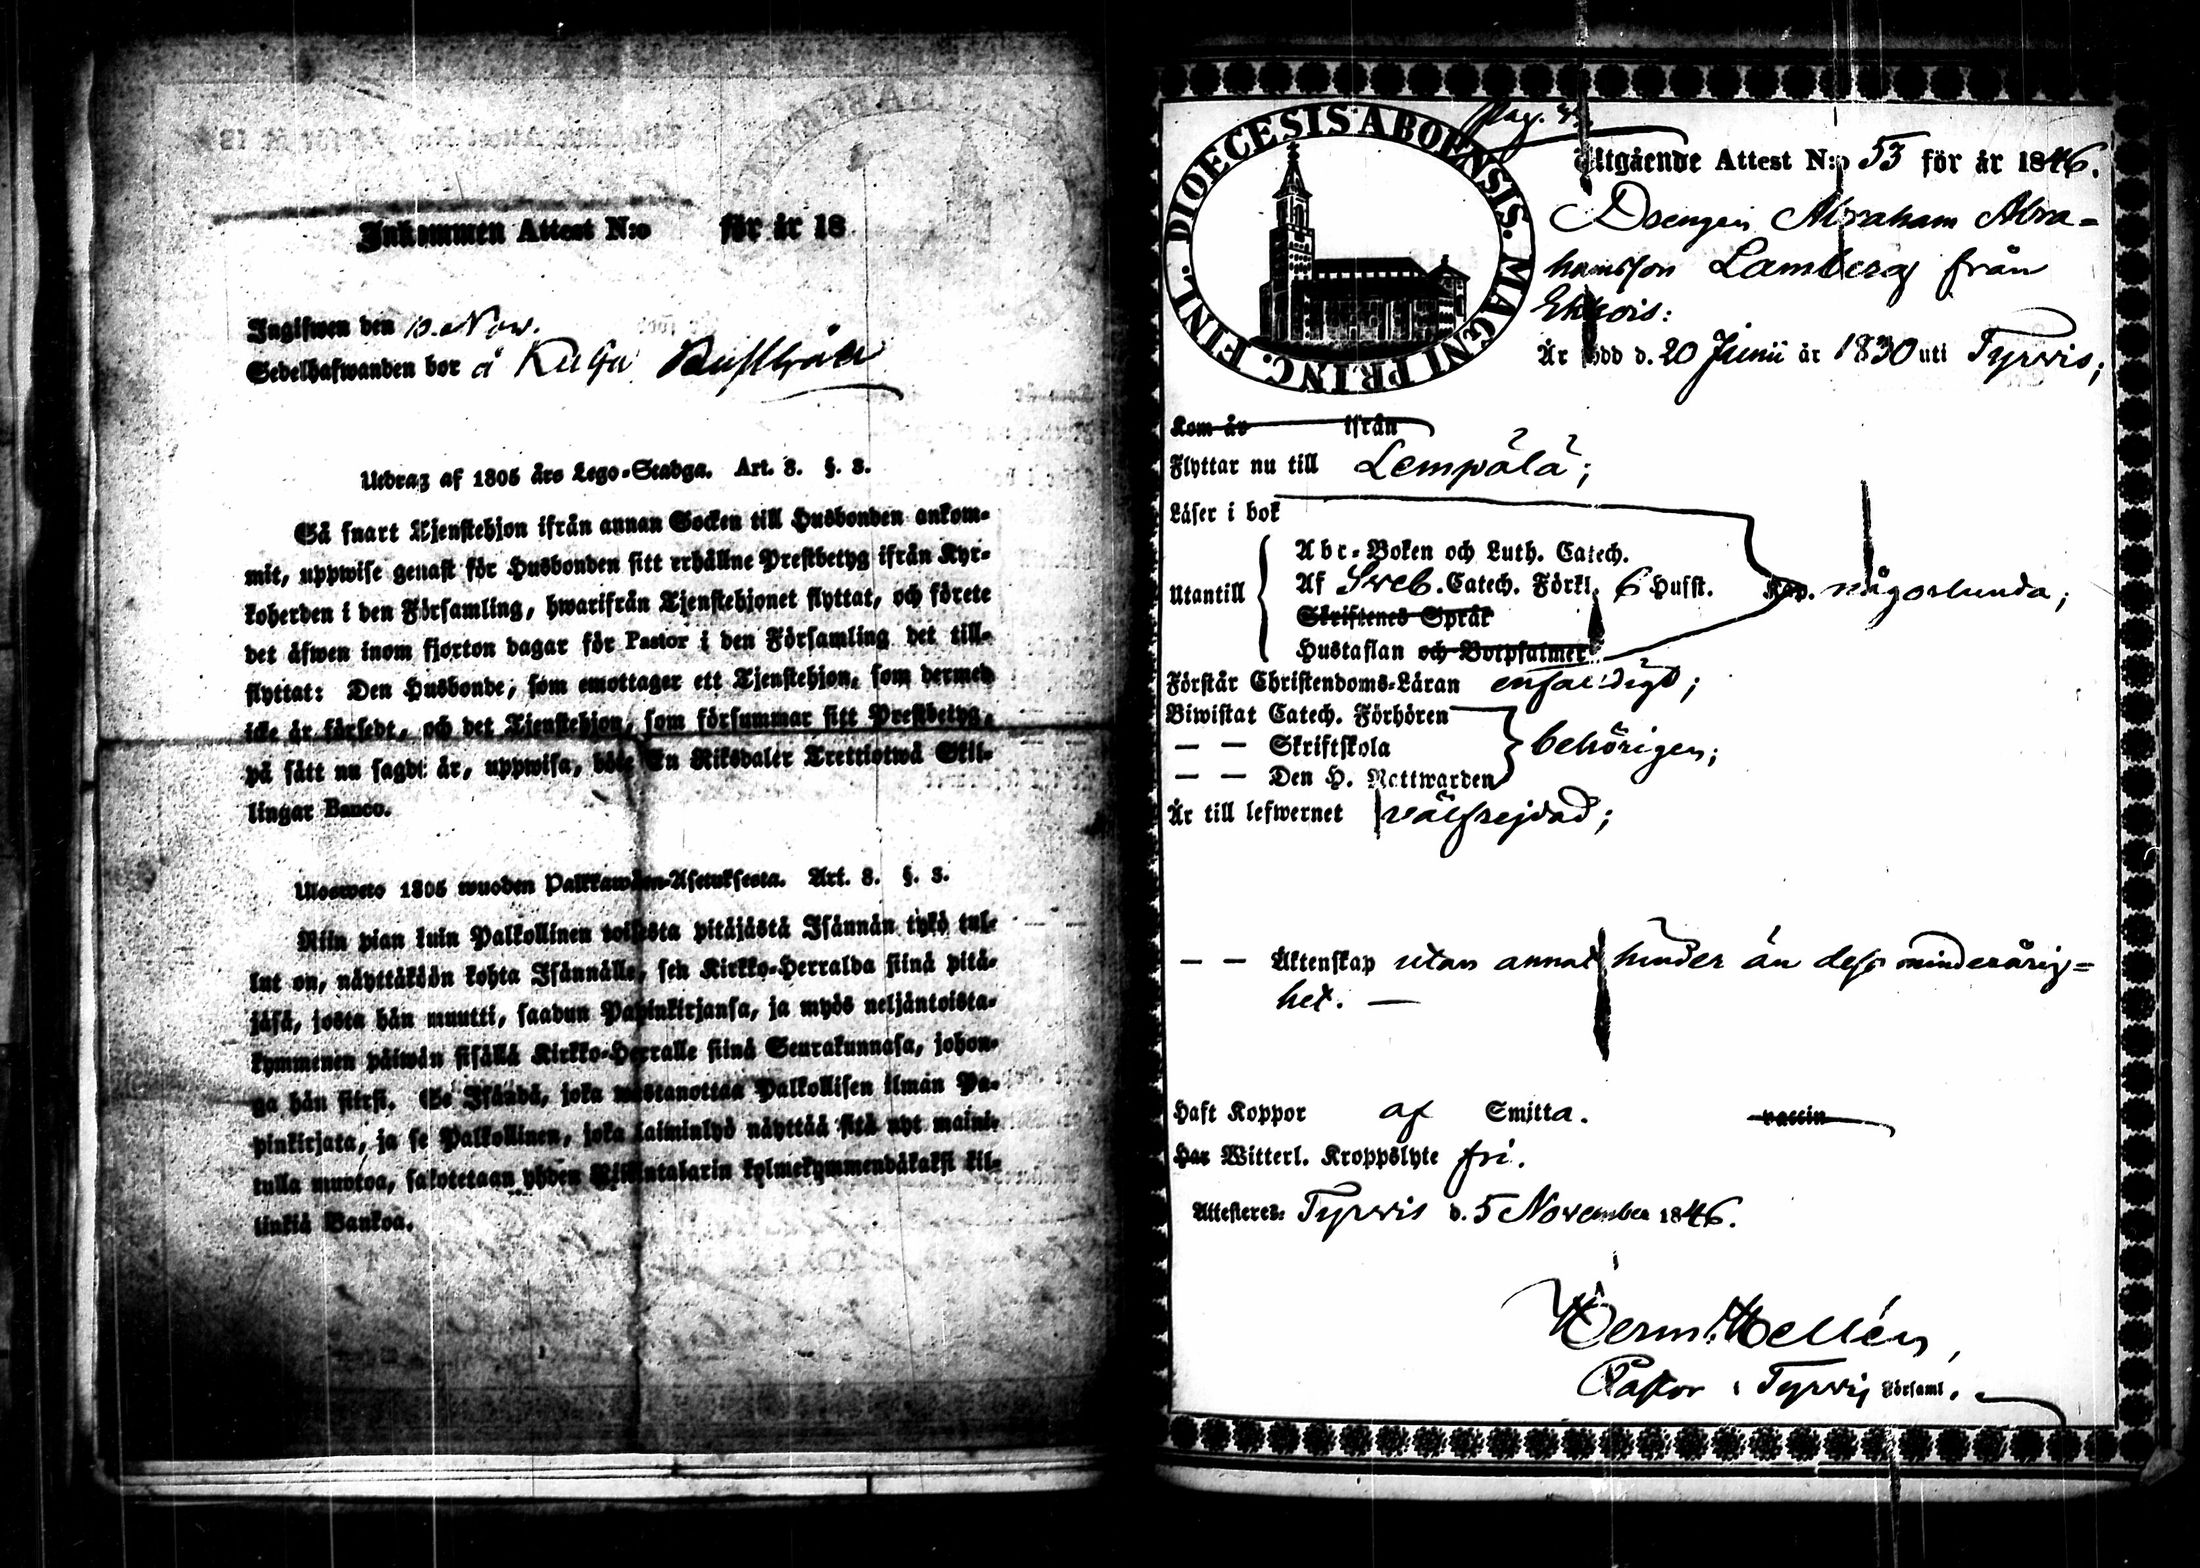 Inkommen Attest N:o för år 18
Ingifwen den 10. Nov.
Sedelhafwanden bor å
Utdrag af 1805 års Lego-Stadga. Art. 8. §. 3.
Så snart Tjenstehjon ifrån annan Socken till Husbonden ankom-
mit, uppwise genast för Husbonden sitt erhållne Prestbetyg ifrån Kyr-
koherden i den Församling, hwarifrån Tjenstehjonet flyttat, och förete
det äfwen inom fjorton dagar för Pastor i den Församling det till-
flyttat: Den Husbonde, som emottager ett Tjenstehjon, som dermed
icke är försedt, och det Tjenstehjon, som försummar sitt Prestbetyg,
på sätt nu sagdt är, uppwisa, böte En Riksdaler Trettiotwå Skil-
lingar Banco.
Ulosweto 1805 wuoden Palkkawäen-Asetuksesta. Art. 8. §. 3.
Niin pian kuin Palkollinen toisesta pitäjästä Isännän tykö tul-
lut on, näyttäköön kohta Isännälle, sen Kirkko-Herralda siinä pitä-
jäsä, josta hän muutti, saadun Papinkirjansa, ja myös neljäntoista-
kymmenen päiwän sisällä Kirkko-Herralle siinä Seurakunnasa, johon-
ga hän siirsi. Se Isändä, joka wastanottaa Palkollisen ilman Pa-
pinkirjata, ja se Palkollinen, joka laiminlyö näyttää sitä nyt maini-
tulla muotoa, sakotetaan yhden Riikintalarin kolmekymmendäkaksi kil-
linkiä Bankoa.
DIOECESIS ABOENSIS. MAGNI PRINC. FINL.
Utgående Attest N:o 53 för år 1846.
Drengen Abraham Abra-
hamsson Lamberg från
Ekkois:
Är född d. 20 Junii år 1830 uti Tyrvis;
Kom år ifrån
Flyttar nu till Lempälä;
Läser i bok
Abc-Boken och Luth. Catech.
Utantill Af Sveb. Catech. Förkl. 6 Husst. Kap. någorlunda;
Skriftenes Språk
Hustaflan och Botpsalmer
Förstår Christendoms-Läran enfaldigt;
Biwistat Catech. Förhören
— — Skriftskola behörigen;
— — Den H. Nattwarden
Är till lefwernet välfrejdad;
— — Äktenskap utan annat hinder än dess minderårig-
het. —
Haft Koppor af Smitta. vaccin
Har Witterl. Kroppslyte fri.
Attesteres: Tyrvis d. 5 November 1846.
Herm. Hellén,
Pastor i Tyrvis Församl.